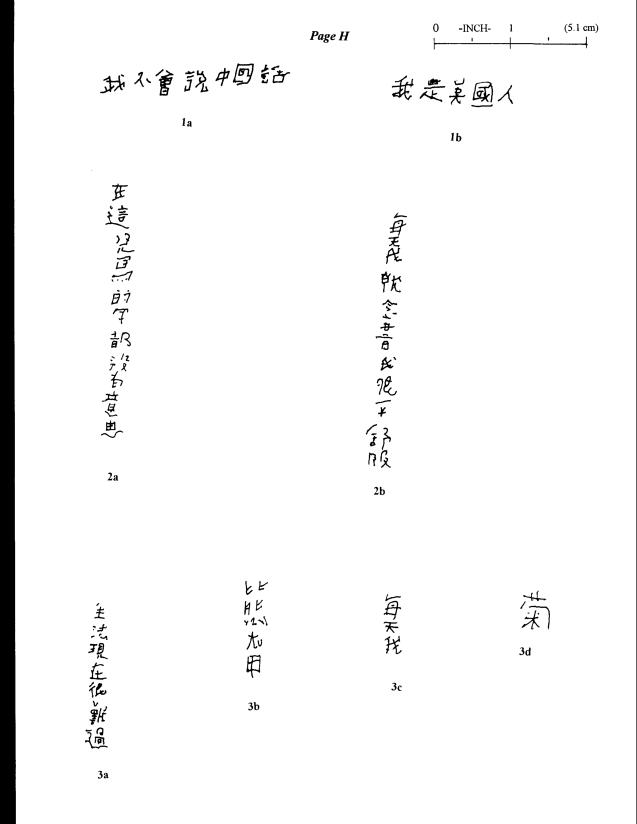 Page H
0 -INCH- 1 (5.1 cm)
我不會說中國話
1a
我是美國人
1b
在這兒寫的字都沒有意思
2a
每天我就念書我很不舒服
2b
主法現在很難過
3a
比熊有用
3b
每天我
3c
菊
3d